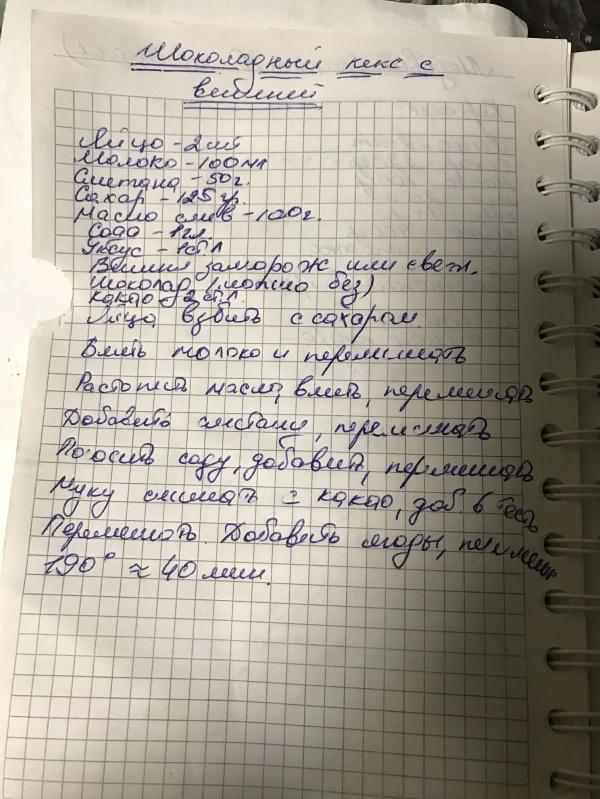 Шоколадный кекс с
вишней
Яйцо - 2 шт
Молоко - 100 мл
Сметана - 50 г.
Сахар - 125 гр.
Масло слив - 100 г.
Сода - 1 ч.л.
Уксус - 1 ст л
Вишня заморож или свеж.
Шоколад (можно без)
Какао - 2 ст л.
Яйца взбить с сахаром.
Влить молоко и перемешать
Растопить масло, влить, перемешать
Добавить сметану, перемешать
Погасить соду, добавить, перемешать
Муку смешать с какао, доб. в тесто
Перемешать. Добавить ягоды,
190° ≈ 40 мин.